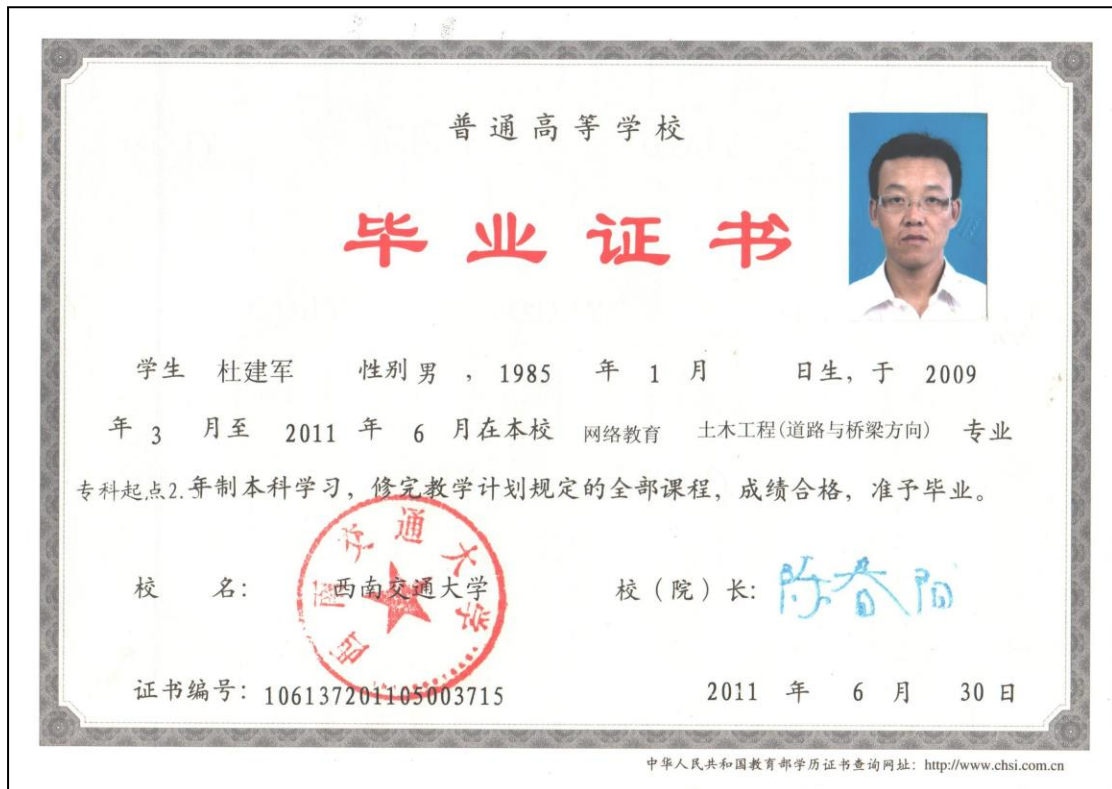 普通高等学校
毕业证书
学生 杜建军 性别 男 ，1985 年 1 月 日生，于 2009
年 3 月至 2011 年 6 月在本校 网络教育 土木工程(道路与桥梁方向) 专业
专科起点2.年制本科学习，修完教学计划规定的全部课程，成绩合格，准予毕业。
校 名： 西南交通大学 校（院）长： 陈春阳
西南交通大学
证书编号：106137201105003715 2011 年 6 月 30 日
中华人民共和国教育部学历证书查询网址：http://www.chsi.com.cn